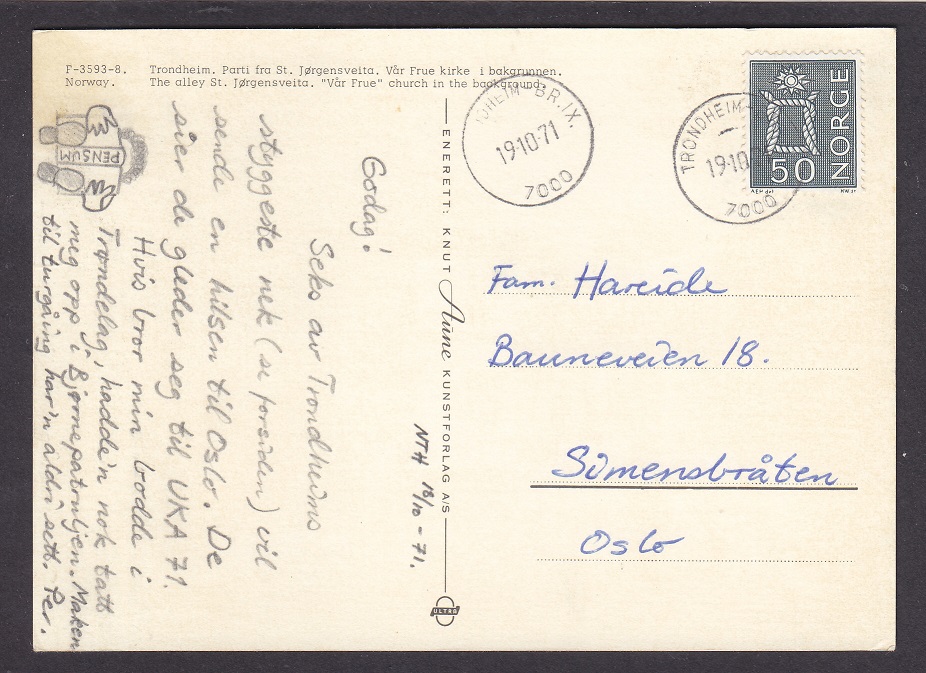 F-3593-8. Trondheim. Parti fra St. Jørgensveita. Vår Frue kirke i bakgrunnen.
Norway. The alley St. Jørgensveita. "Vår Frue" church in the background.
PENSUM
NTH 18/10-71.
Godag!
Seks av Trondheims
styggeste nek (se forsiden) vil
sende en hilsen til Oslo. De
sier de gleder seg til UKA 71.
Hvis bror min bodde i
Trøndelag, hadde'n nok tatt
meg opp i Bjørnepatruljen. Maken
til turgåing har'n aldri sett. Per.
ENERETT: KNUT Aune KUNSTFORLAG A/S
ULTRA
TRONDHEIM-BR.IX.
19·10·71
7000
TRONDHEIM
19·10
7000
NORGE
50
Fam. Hareide
Bauneveien 18.
Simensbråten
Oslo